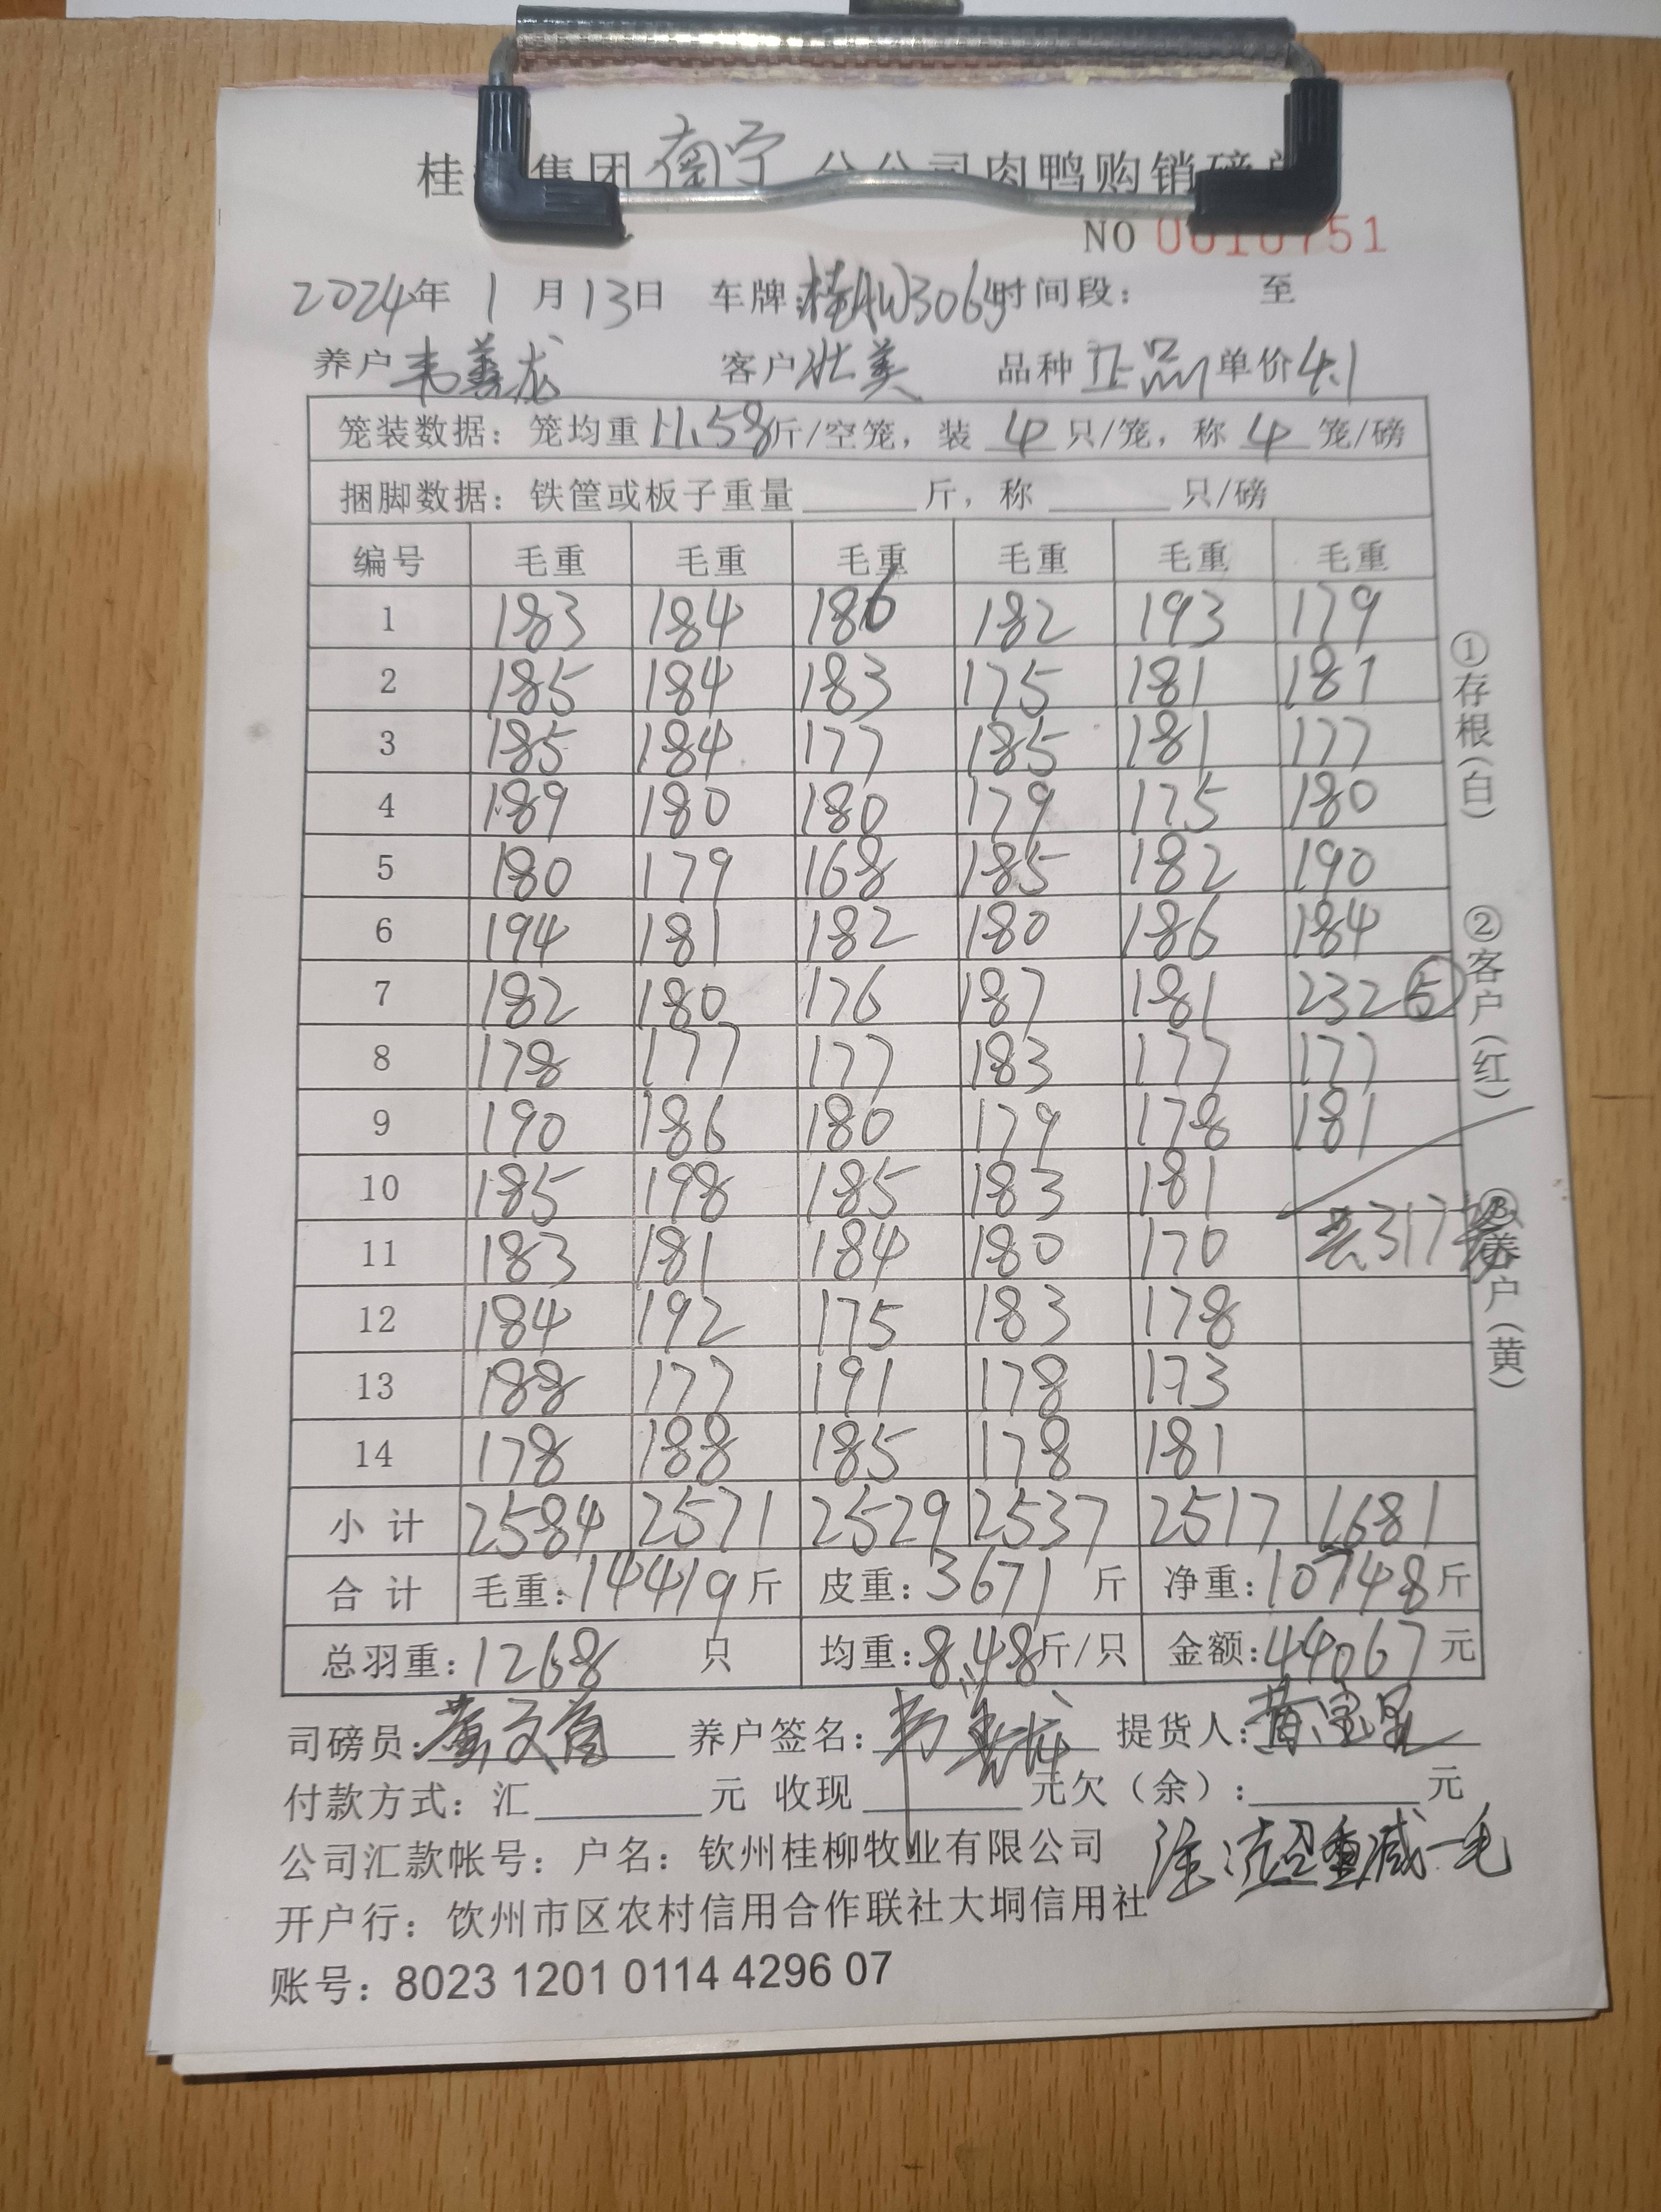 桂 集团南宁分公司肉鸭购销磅单
NO 0010751
2024年 1 月 13日 车牌:桂AW3064 时间段: 至
养户 韦善龙 客户 壮美 品种 正品 单价 4.1
笼装数据: 笼均重 11.58 斤/空笼, 装 4 只/笼, 称 4 笼/磅
捆脚数据: 铁筐或板子重量 斤, 称 只/磅
编号 毛重 毛重 毛重 毛重 毛重 毛重
1 183 184 186 182 193 179
2 185 184 183 175 181 181
3 185 184 177 185 181 177
4 189 180 180 179 175 180
5 180 179 168 185 182 190
6 194 181 182 180 186 184
7 182 180 176 187 181 232 ⑤
8 178 177 177 183 177 177
9 190 186 180 179 178 181
10 185 198 185 183 181
11 183 181 184 180 170 共317笼
12 184 192 175 183 178
13 188 177 191 178 173
14 178 188 185 178 181
小计 2584 2571 2529 2537 2517 1681
合计 毛重: 14419 斤 皮重: 3671 斤 净重: 10748 斤
总羽重: 1268 只 均重: 8.48 斤/只 金额: 44067 元
司磅员: 黄文 养户签名: 韦善龙 提货人: 黄宝
付款方式: 汇 元 收现 元 欠(余): 元
公司汇款帐号: 户名: 钦州桂柳牧业有限公司
注: 超重减一毛
开户行: 钦州市区农村信用合作联社大垌信用社
账号: 8023 1201 0114 4296 07
①存根(白)
②客户(红)
③养户(黄)